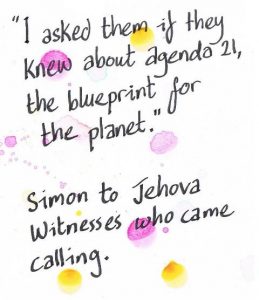 "I asked them if they
knew about agenda 21,
the blueprint for
the planet."
Simon to Jehova
Witnesses who came
calling.